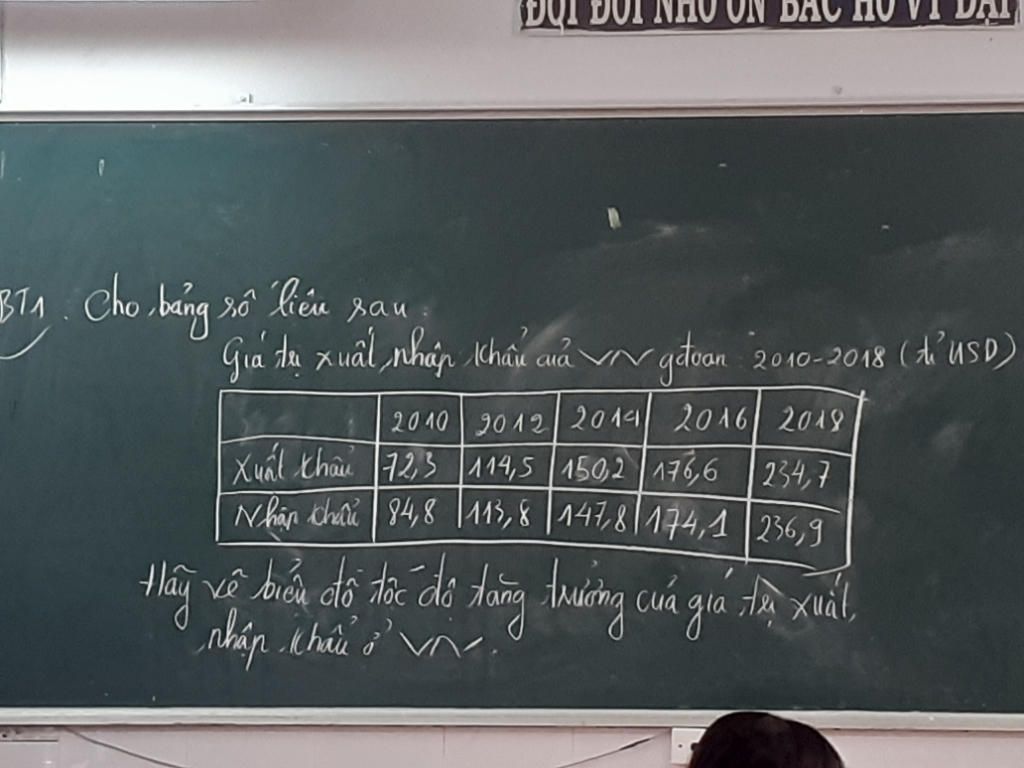 ĐỜI ĐỜI NHỚ ƠN BÁC HỒ VĨ ĐẠI
BT1. Cho bảng số liệu sau:
Giá trị xuất, nhập khẩu của VN gđoạn 2010-2018 (tỉ USD)
2010 2012 2014 2016 2018
Xuất khẩu 72,3 114,5 150,2 176,6 234,7
Nhập khẩu 84,8 113,8 147,8 174,1 236,9
Hãy vẽ biểu đồ tốc độ tăng trưởng của giá trị xuất,
nhập khẩu ở VN.